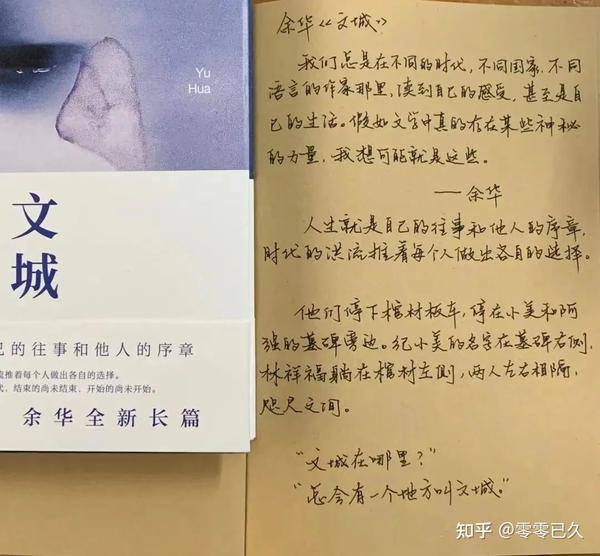 Yu
Hua
文
城
己的往事和他人的序章
流推着每个人做出各自的选择。
代，结束的尚未结束、开始的尚未开始。
余华全新长篇
余华《文城》
我们总是在不同的时代，不同国家，不同
语言的作家那里，读到自己的感受，甚至是自
己的生活。假如文学中真的存在某些神秘
的力量，我想可能就是这些。
——余华
人生就是自己的往事和他人的序章，
时代的洪流推着每个人做出各自的选择。
他们停下棺材板车，停在小美和阿
强的墓碑旁边。纪小美的名字在墓碑右侧，
林祥福躺在棺材左侧，两人左右相隔，
咫尺之间。
“文城在哪里？”
“总会有一个地方叫文城。”
知乎 @零零已久